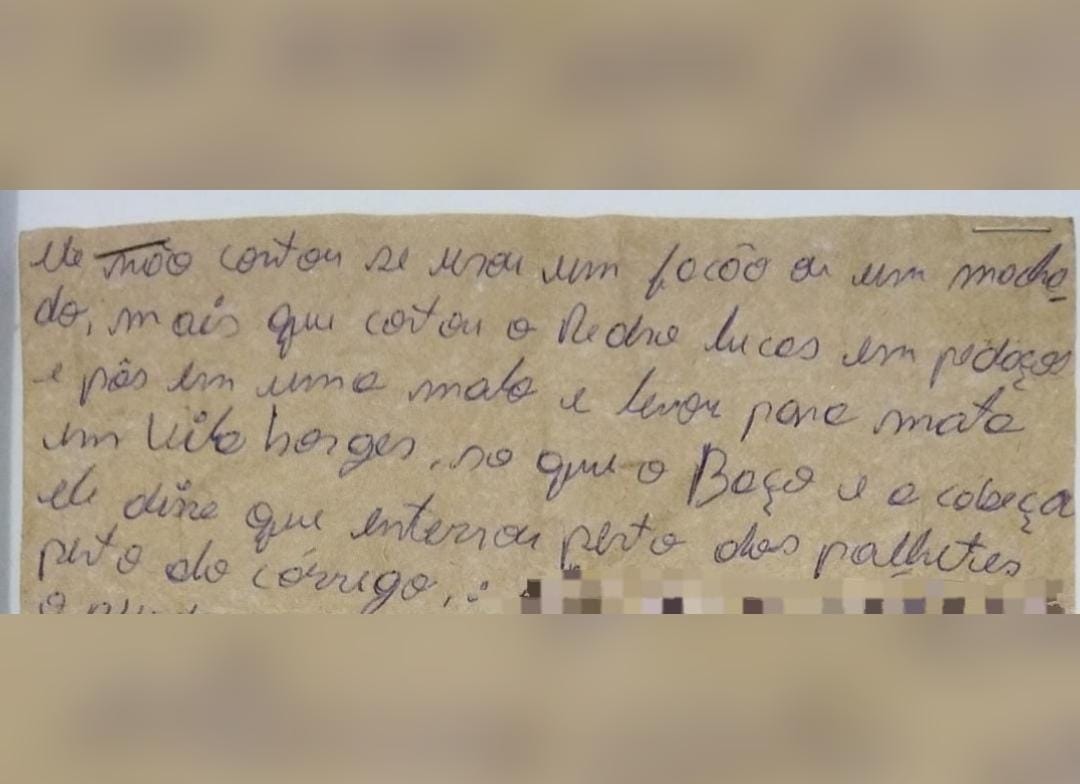 ele não contou se usou um facão ou um macha-
do, mais que cortou o Pedro Lucas em pedaços
e pôs em uma mala e levou para mata
em Vila borges, so que o Baço e a cabeça
ele disse que enterrou perto dos palhetes
perto do córrego,